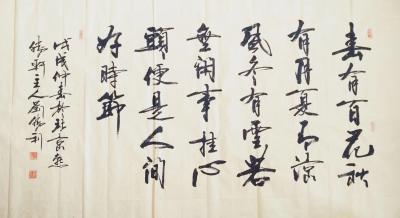 春有百花秋
有月夏有涼
風冬有雪若
無闲事挂心
頭便是人间
好時節
戊戌仲春於北京燕
軒主人